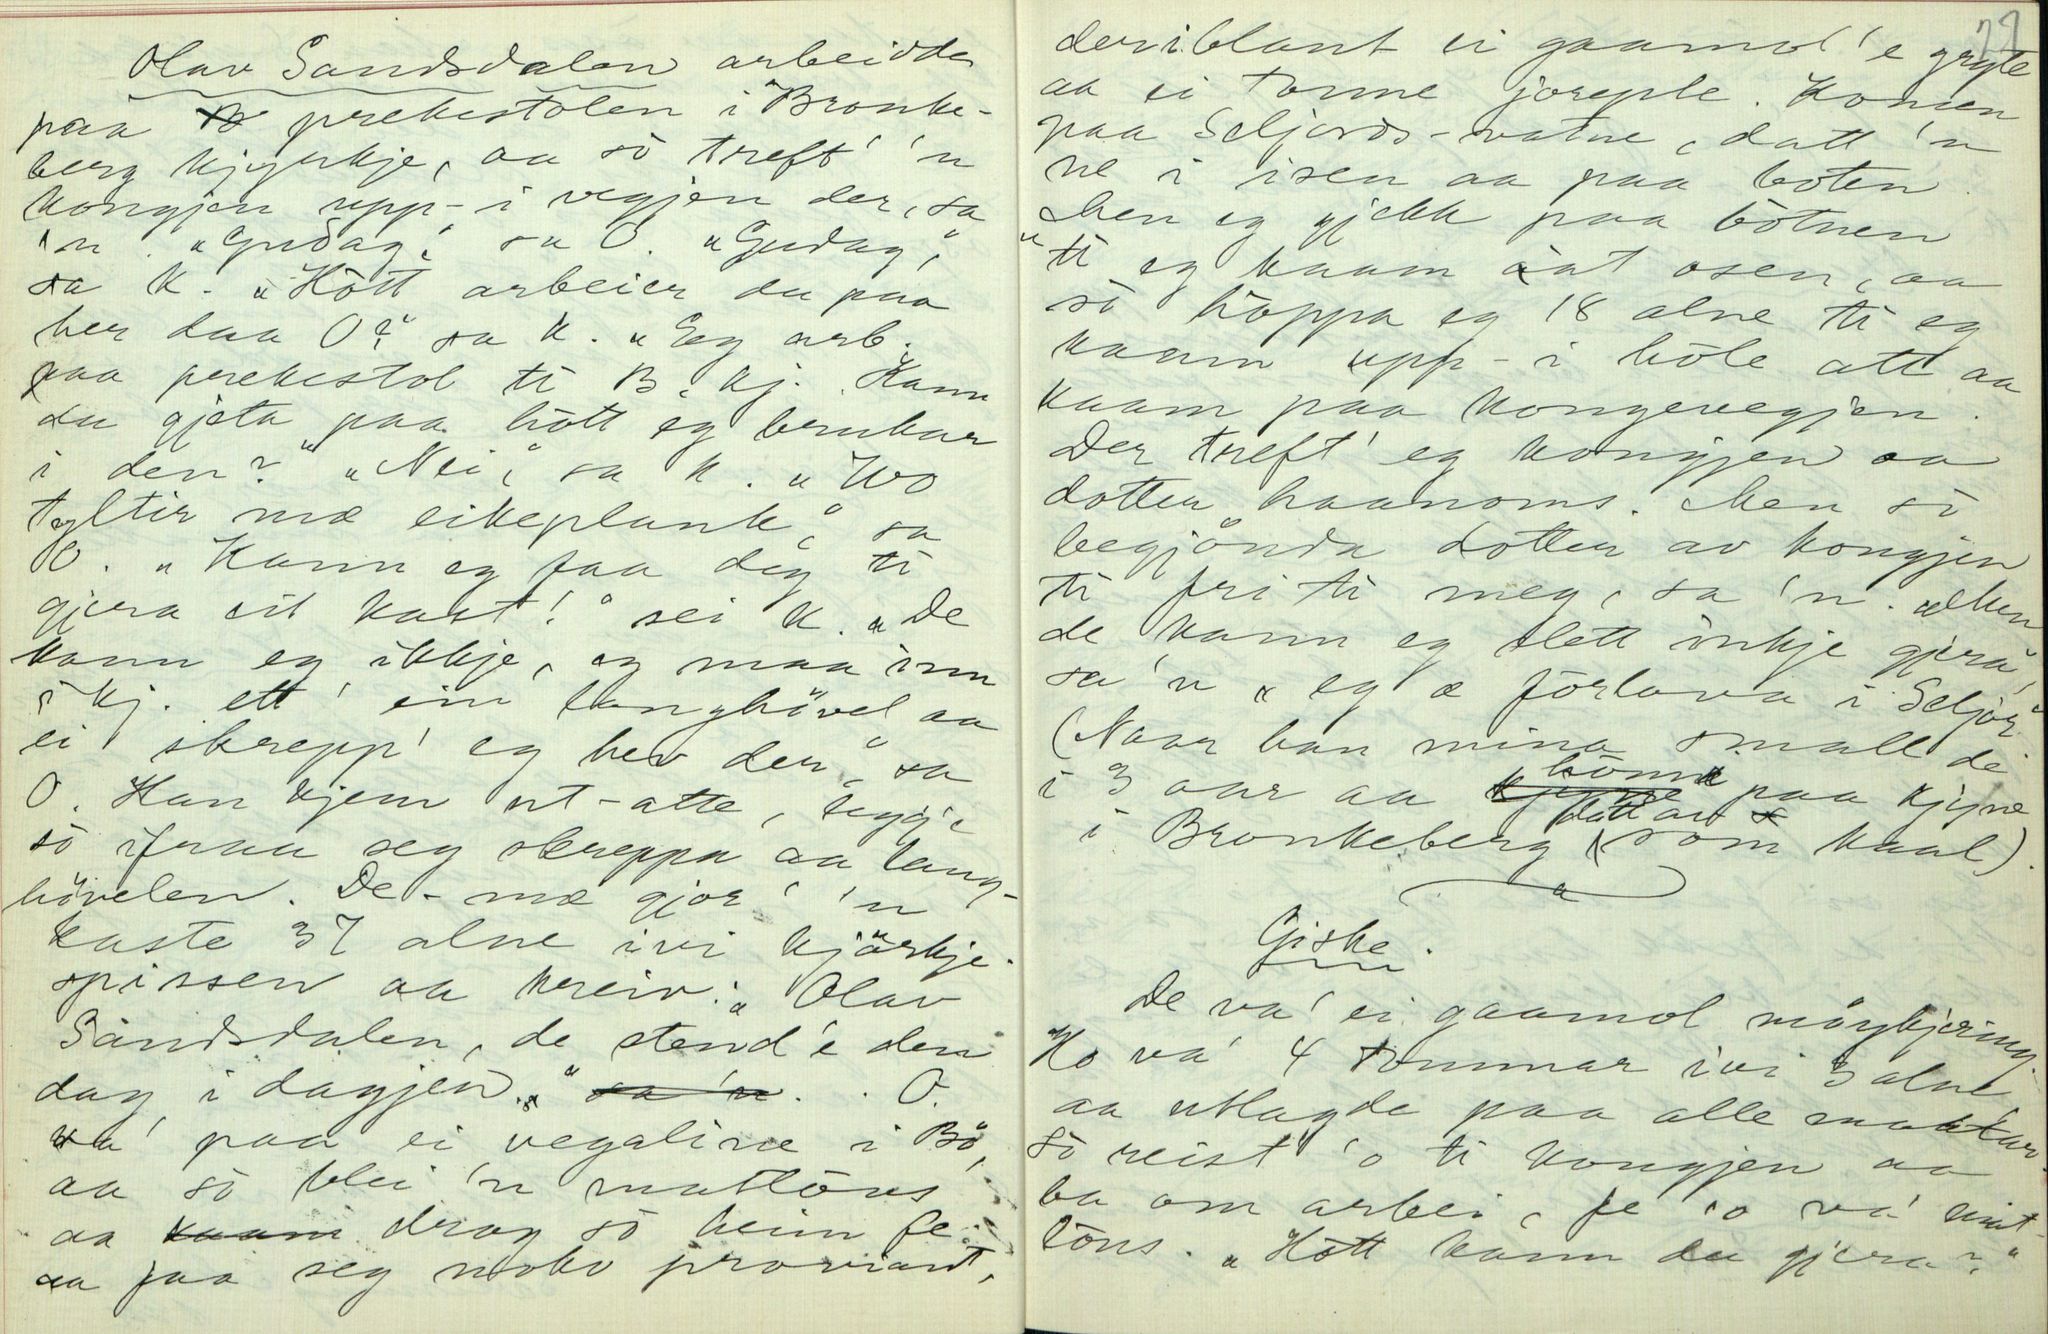 Olav Sandsdalen arbeidde
paa prekestolen i Bronke-
berg kjyrkje, aa sò treft' 'n
kongjen upp-i vegjen der, sa
'n. "Gudag," sa O. "Gudag,"
sa K. "Hòtt arbeier du paa
her daa O?" sa K. "Eg arb.
paa prekestol ti B. kj. Kann
du gjeta paa hòtt eg brukar
i den?" "Nei," sa K. "Two
tyltir mæ eikeplank," sa
O. "Kann eg faa deg ti
gjera eit kast!" sei K. "De
kann eg ikkje, eg maa inn
i kj. ett' ein langhövel aa
ei skrepp' eg hev der," sa
O. Han kjem ut-atte, leggje
sò ifraa seg skreppa aa lang-
hövelen. De-mæ gjor' 'n
kaste 37 alne ivi kjörkje-
spissen aa skreiv: "Olav
Sandsdalen, de stend 'e den
dag i dagjen." sa 'n. O.
va' paa ei vegaline i Bö,
aa sò blei 'n matlöus
aa kaam drog sò heim fe
aa faa seg noko proviant,
29
deriblant ei gaamol 'e gryte
aa ei tonne joreple. Komen
paa Seljords-vatne, datt 'n
ne i isen aa paa boten.
Men eg gjekk paa bötnen
"ti eg kaam aat osen, aa
sò höppa eg 18 alne ti eg
kaam upp-i höle att aa
kaam paa kongevegjen.
Der treft' eg kongjen aa
dotter haanoms. Men sò
begjönda dotter av kongjen
ti fri ti meg, sa 'n. "Men
de kann eg slett inkje gjera,"
sa 'n "eg æ förlova i Seljor"
(Naar han mina small de
i 3 aar aa kjyne paa kjyne
i Bronkeberg datt av som kaal).
Giske.
De va' ei gaamol möykjering.
Ho va' 4 tommar ivi 3 alne
aa utlagde paa alle maatar.
Sò reist 'o ti kongjen aa
ba om arbei, fe 'o va' mat-
löus. "Hòtt kann du gjera?"